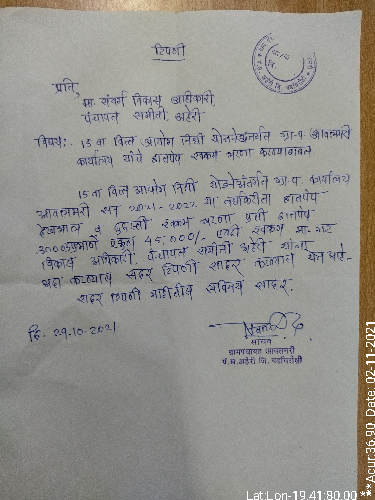 टिपणी
प्रति,
मा. संवर्ग विकास अधिकारी,
पंचायत समिती अहेरी
विषय:- 15 वा वित्त आयोग निधी योजनेअंतर्गत ग्रा.पं. आवलमरी
कार्यालय यांचे हातपंप रक्कम भरणा करण्याबाबत
15 वा वित्त आयोग निधी योजनेअंतर्गत ग्रा.पं. कार्यालय
आवलमरी सन 2021-2022 या वर्षाकरीता हातपंप
देखभाल व दुरुस्ती रक्कम भरणा प्रती हातपंप
एकुण 45,000/- रक्कम मा.
विकास अधिकारी, पंचायत समिती अहेरी यांना
अदा करण्यास सदर टिपणी सादर करण्यात येत आहे.
सदर टिपणी माहितीस सविनय सादर.
दि. 29.10.2021
सचिव
ग्रामपंचायत आवलमरी
पं.स.अहेरी जि. गडचिरोली
Lat:Lon-19.41:80.00 ***Acur:36.90, Date: 02-11-2021